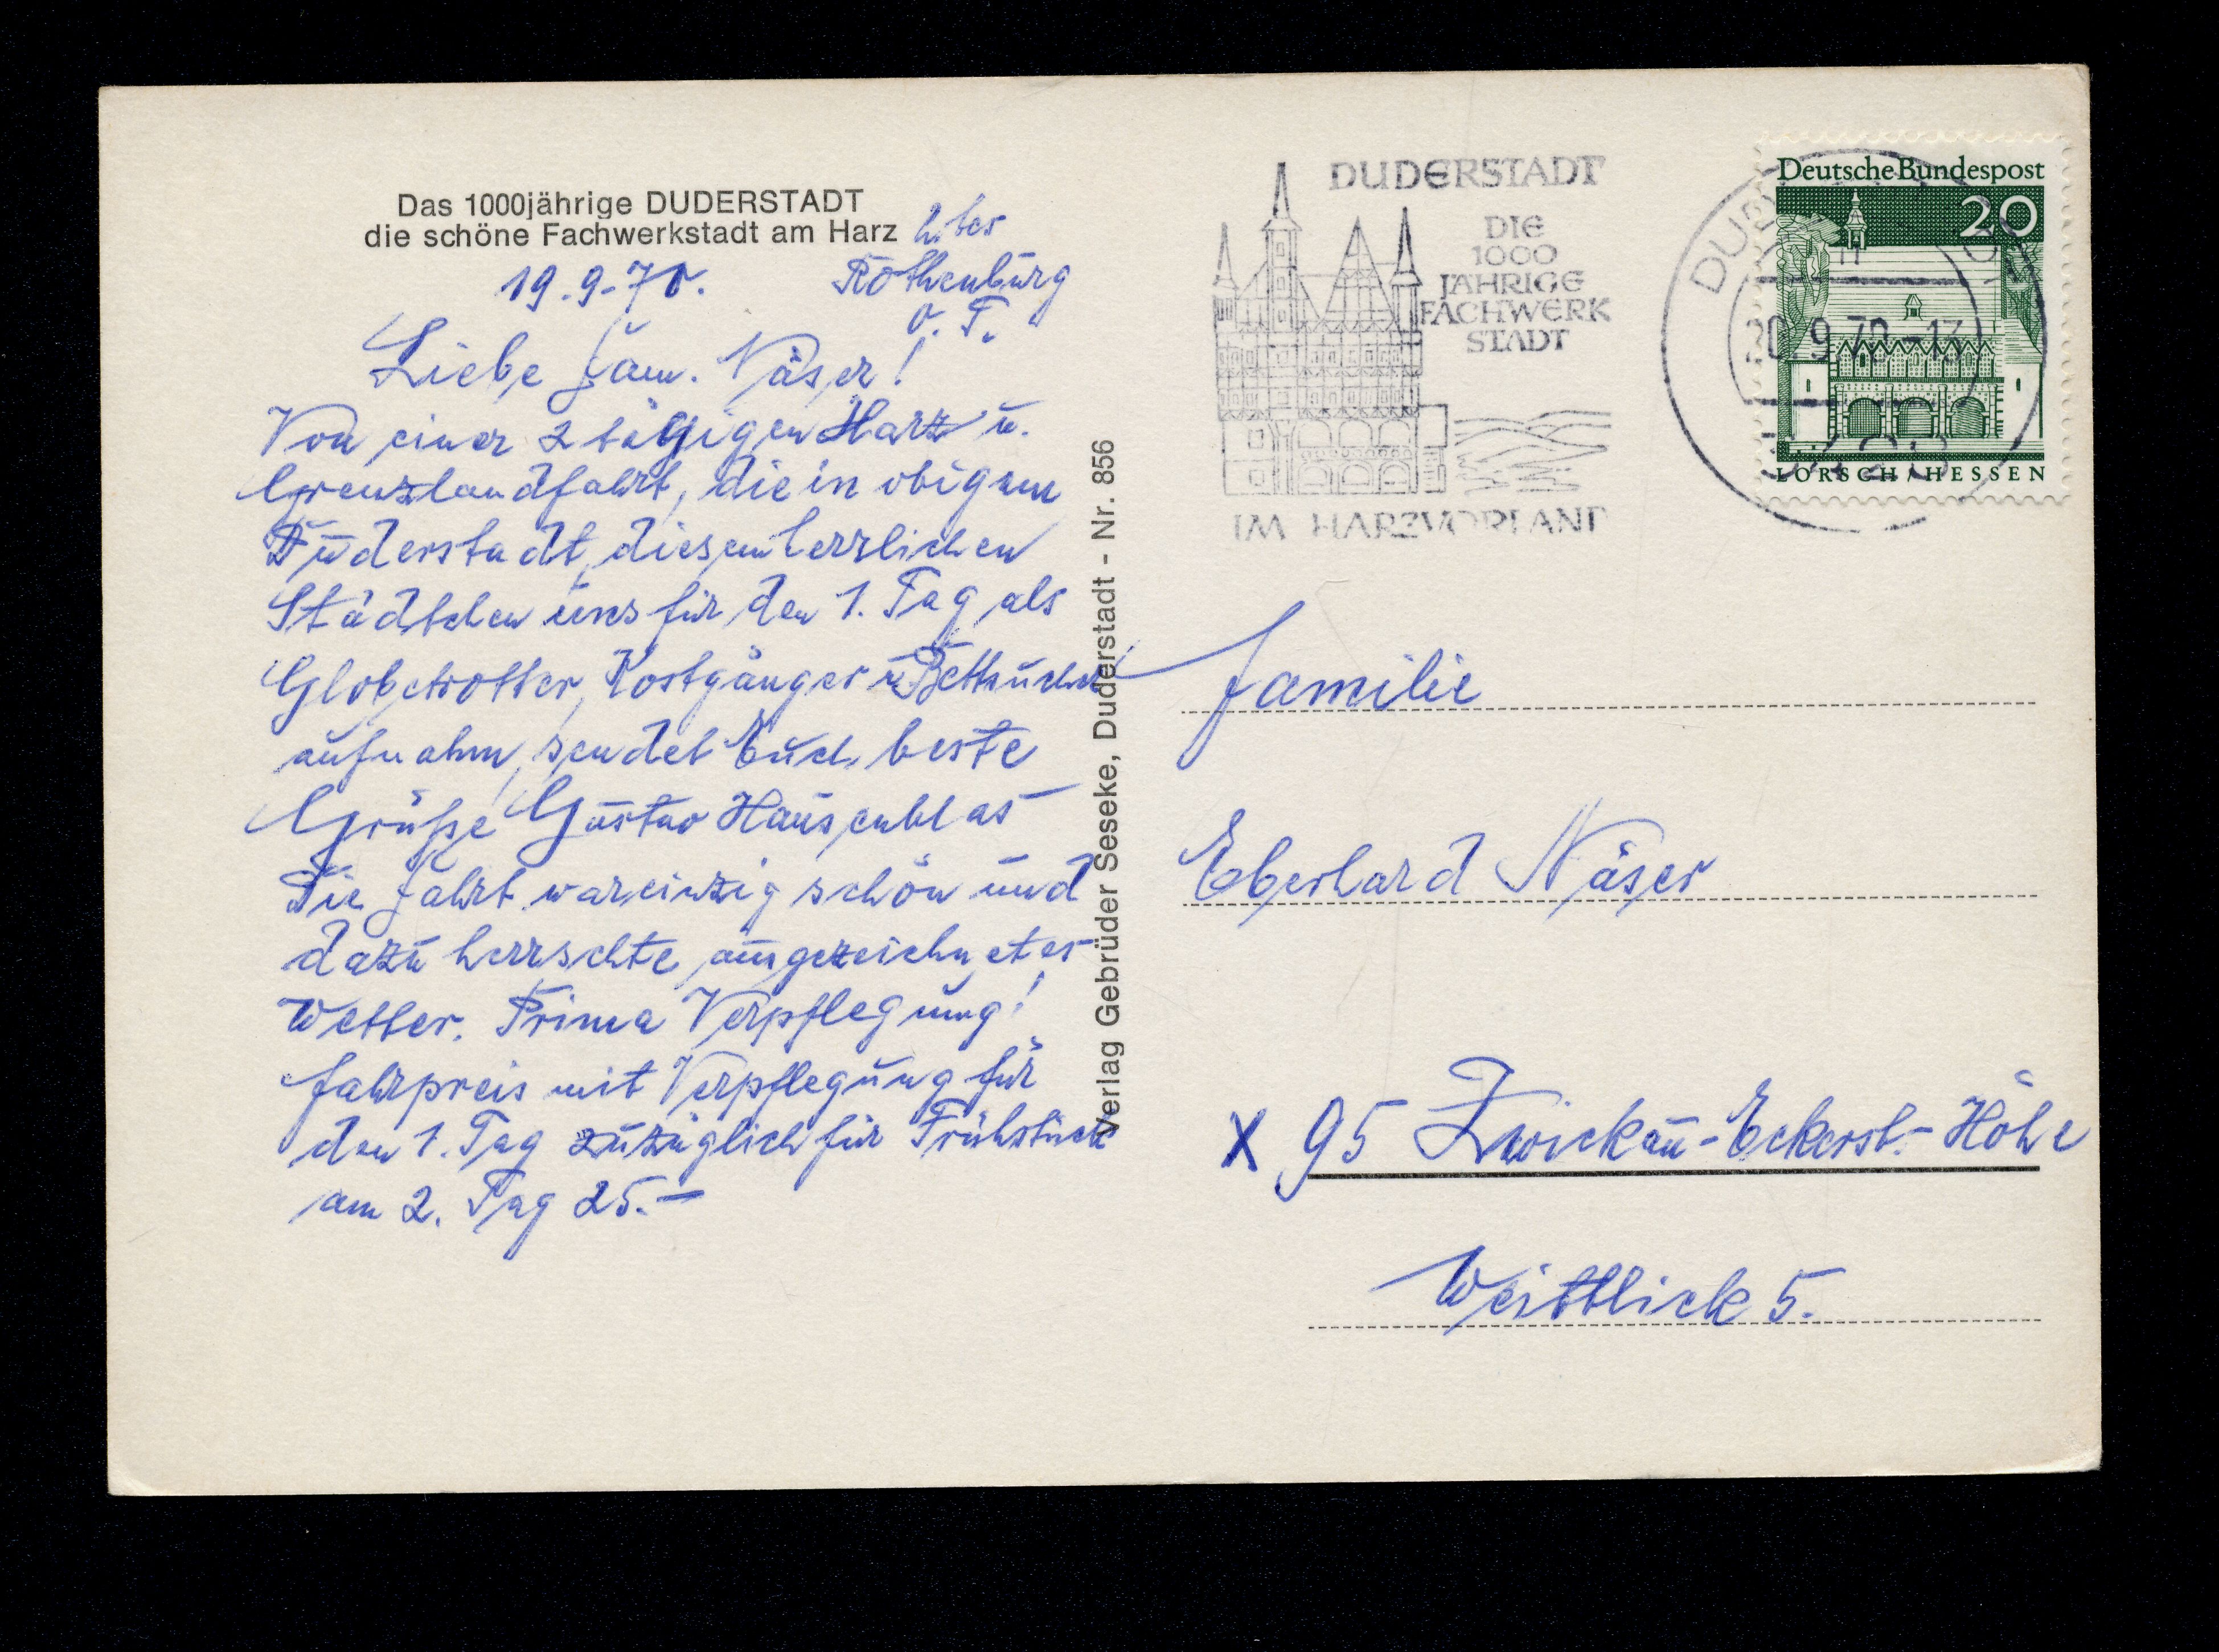 Das 1000jährige DUDERSTADT
die schöne Fachwerkstadt am Harz
19.9.70.
Rothenburg
o. T.
Liebe Fam. Näser!
Von einer 2 tägigen Harz u.
Grenzlandfahrt, die in obigem
Duderstadt, diesem herrlichen
Städtchen uns für den 1. Tag als
Globetrotter, Kostgänger u.
aufnahm, sendet Euch beste
Grüße Gustav Hausenblas
Die Fahrt war einzig schön und
dazu herrschte ausgezeichnetes
Wetter. Prima Verpflegung!
Fahrpreis mit Verpflegung für
den 1. Tag zuzüglich für Frühstück
am 2. Tag 25.–
Verlag Gebrüder Seseke, Duderstadt - Nr. 856
DUDERSTADT
DIE
1000
JÄHRIGE
FACHWERK
STADT
IM HARZVORLAND
20.9.70-13
Deutsche Bundespost
20
LORSCH / HESSEN
Familie
Eberhard Näser
X 95 Zwickau-Eckersb.-Höhe
Weitblick 5.